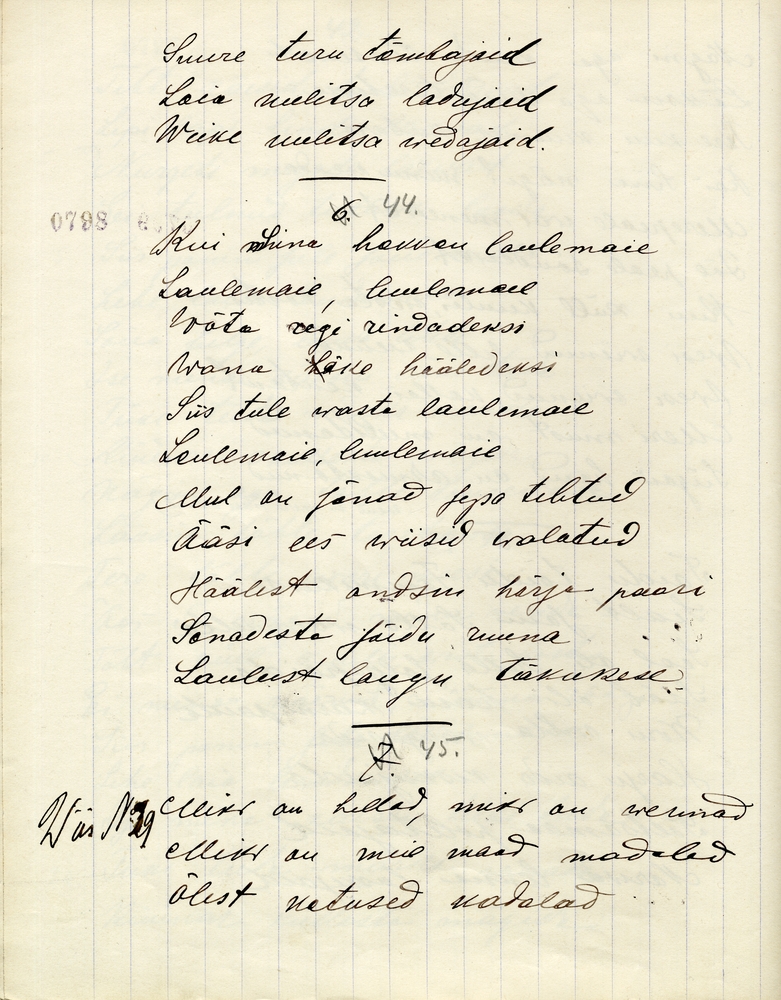 Suure turu tõmbajaid
Laia uulitsa ladujaid
Weike uulitsa wedajaid.
6. 44.
0798
Kui mina hakkan laulemaie
Laulemaie, luulemaie
Wõta regi rindadeksi
Wana käke hääledeksi
Siis tule wasta laulemaie
Laulemaie, luulemaie
Mul on sõnad sepa tehtud
Ääsi ees wiisid walatud
Häälest andsin härja paari
Sõnadesta sõidu ruuna
Laulust laugu täkukese
7. 45.
Wiis N 29
Miks on hellad, miks on wennad
Miks on meie maad madalad
Õlest katused kadalad